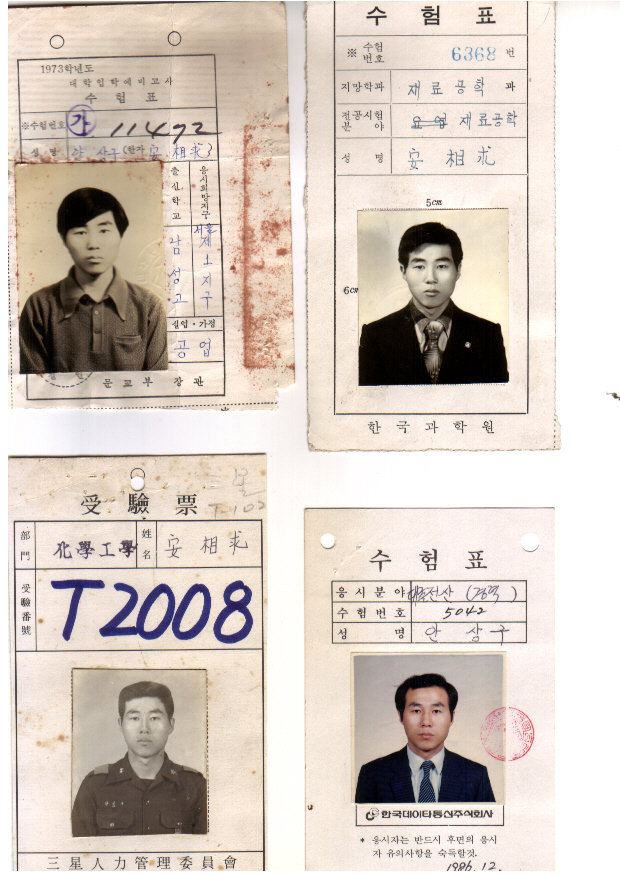 1973학년도
대학입학예비고사
수험표
※수험번호 가 11472
성명 안상구 (한자 安相求)
출신학교 남성고
응시희망지구 서울 제1지구
실업·가정
공업
문교부장관
수험표
※ 수험번호 6368 번
지망학과 재료공학 과
전공시험분야 재료공학
성명 安相求
5cm
6cm
한국과학원
T-102
受驗票
部門 化學工學 姓名 安相求
受驗番號 T2008
三星人力管理委員會
수험표
응시분야 전산 (경력)
수험번호 5042
성명 안상구
한국데이타통신주식회사
* 응시자는 반드시 후면의 응시
자 유의사항을 숙독할것.
1986.12.